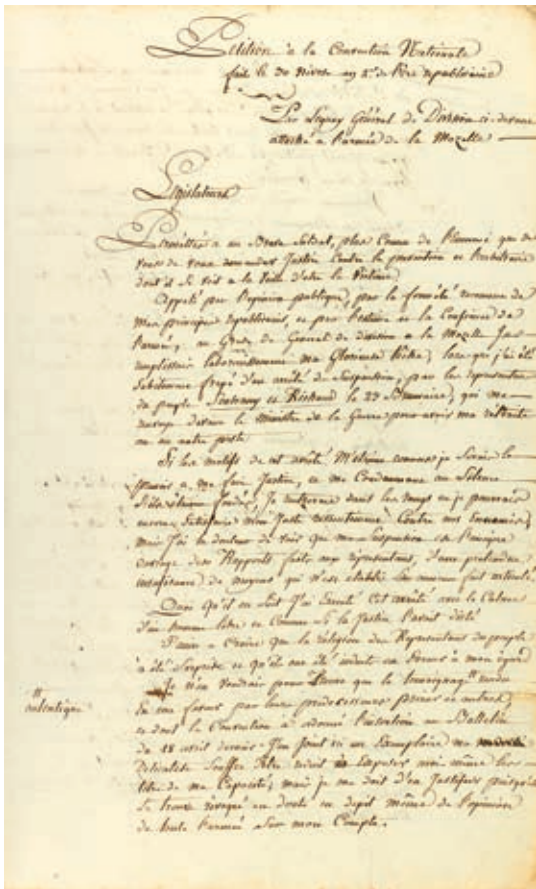 Pétition à la Convention Nationale
fait le 30 Nivose an 2e de l'ère républicaine
Par Léquoy Général de Division ci-devant
attaché à l'armée de la Mozelle
Législateurs
Permettés à un Brave Soldat, plus Connu de Renommé que de
vous de vous demander Justice Contre la prévention et l'arbitraire
dont il se voit à la Veille d'etre la Victime
Appellé par l'opinion publique, par la fermeté reconnue de
mes principes républicains, et par l'estime et la Confiance de
l'armée, au Grade de Général de division a la Mozelle Je
remplissois laborieusement ma Glorieuse tâche, lorsque j'ai été
Subitement frapé d'un arrêté de Suspension, par les représentans
du peuple et Richaud le 23 Brumaire, qui me
renvoye devant le Ministre de la Guerre pour avoir ma retraite
ou un autre poste
Si les motifs de cet arrêté M'etoient connus je Serois le
premier a me faire Justice, et me Condamnant au Silence
Je dans les rangs où je pourrois
encore Satisfaire mon Juste ressentiment Contre nos Ennemis,
mais J'ai la douleur de voir que ma Suspention est l'unique
ouvrage des Rapports faits aux représentans, d'une prétendue
insuffisance de moyens qui n'est etablie Sur aucun fait articulé.
Quoi Qu'il en Soit J'ai Executé Cet arrêté avec le Calme
d'un homme libre et Comme Si la Justice l'avoit dicté
J'aime a Croire que la religion des Représentans du peuple
a été Surprise et qu'ils ont été induits en Erreur à mon égard
Je n'en voudrois pour preuve que le temoignage rendu
En ma faveur par leurs prédécesseurs
autentique
et dont la Convention a ordonné l'insertion au Bulletin
du 18 avril dernier. J'en joint ici un Exemplaire ma modestie
Délicatesse Souffre d'etre réduit à Exposer moi même les
titre de ma Capacité; mais je me dois d'en Justifier puisqu'elle
Se trouve révoqué en doute en depit même de l'opinion
de toute l'armée Sur mon Compte.